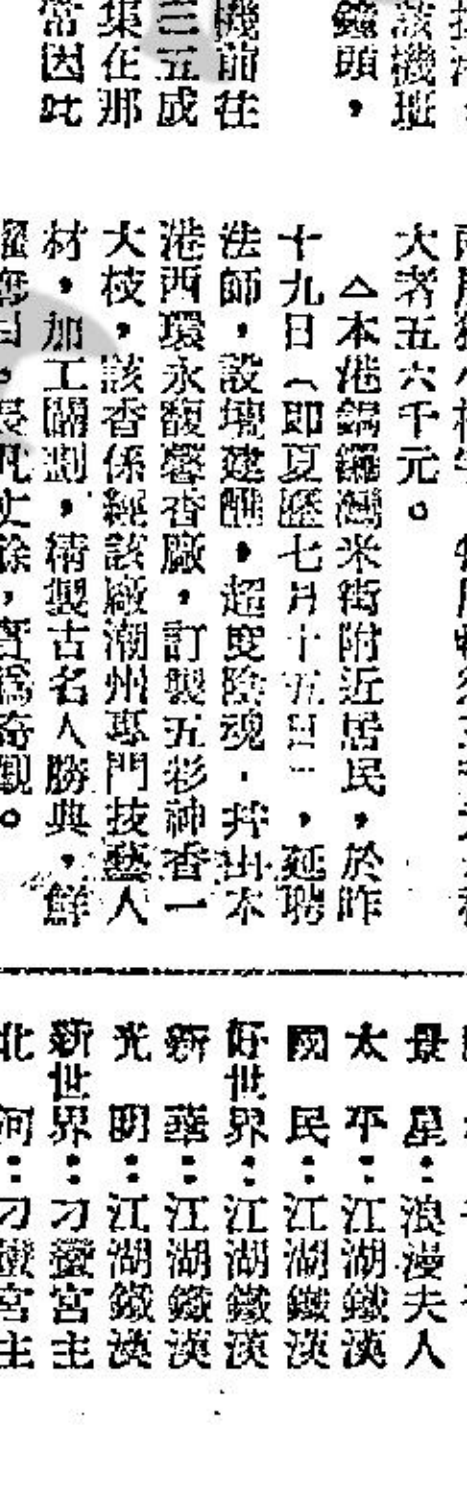 該機班
鐘頭，
機前往
三五成
集在那
常因此
大者五六千元。
△本港銅鑼灣米街附近居民，於昨
十九日（即夏曆七月十五日），延聘
法師，設壇建醮，超度陰魂，幷由本
港西環永馥馨香廠，訂製五彩神香一
大枝，該香係經該廠潮州專門技藝人
材，加工關劃，精製古名人勝典，鮮
丈餘，
觀。
景星：浪漫夫人
太平：江湖鐵漢
國民：江湖鐵漢
好世界：江湖鐵漢
新華：江湖鐵漢
光明：江湖鐵漢
新世界：刁蠻宮主
北河：刁蠻宮主